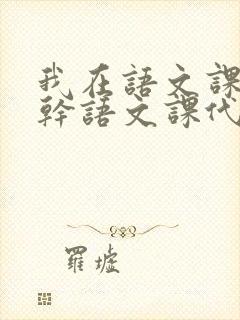 我在語文課
幹語文課代
羅墟